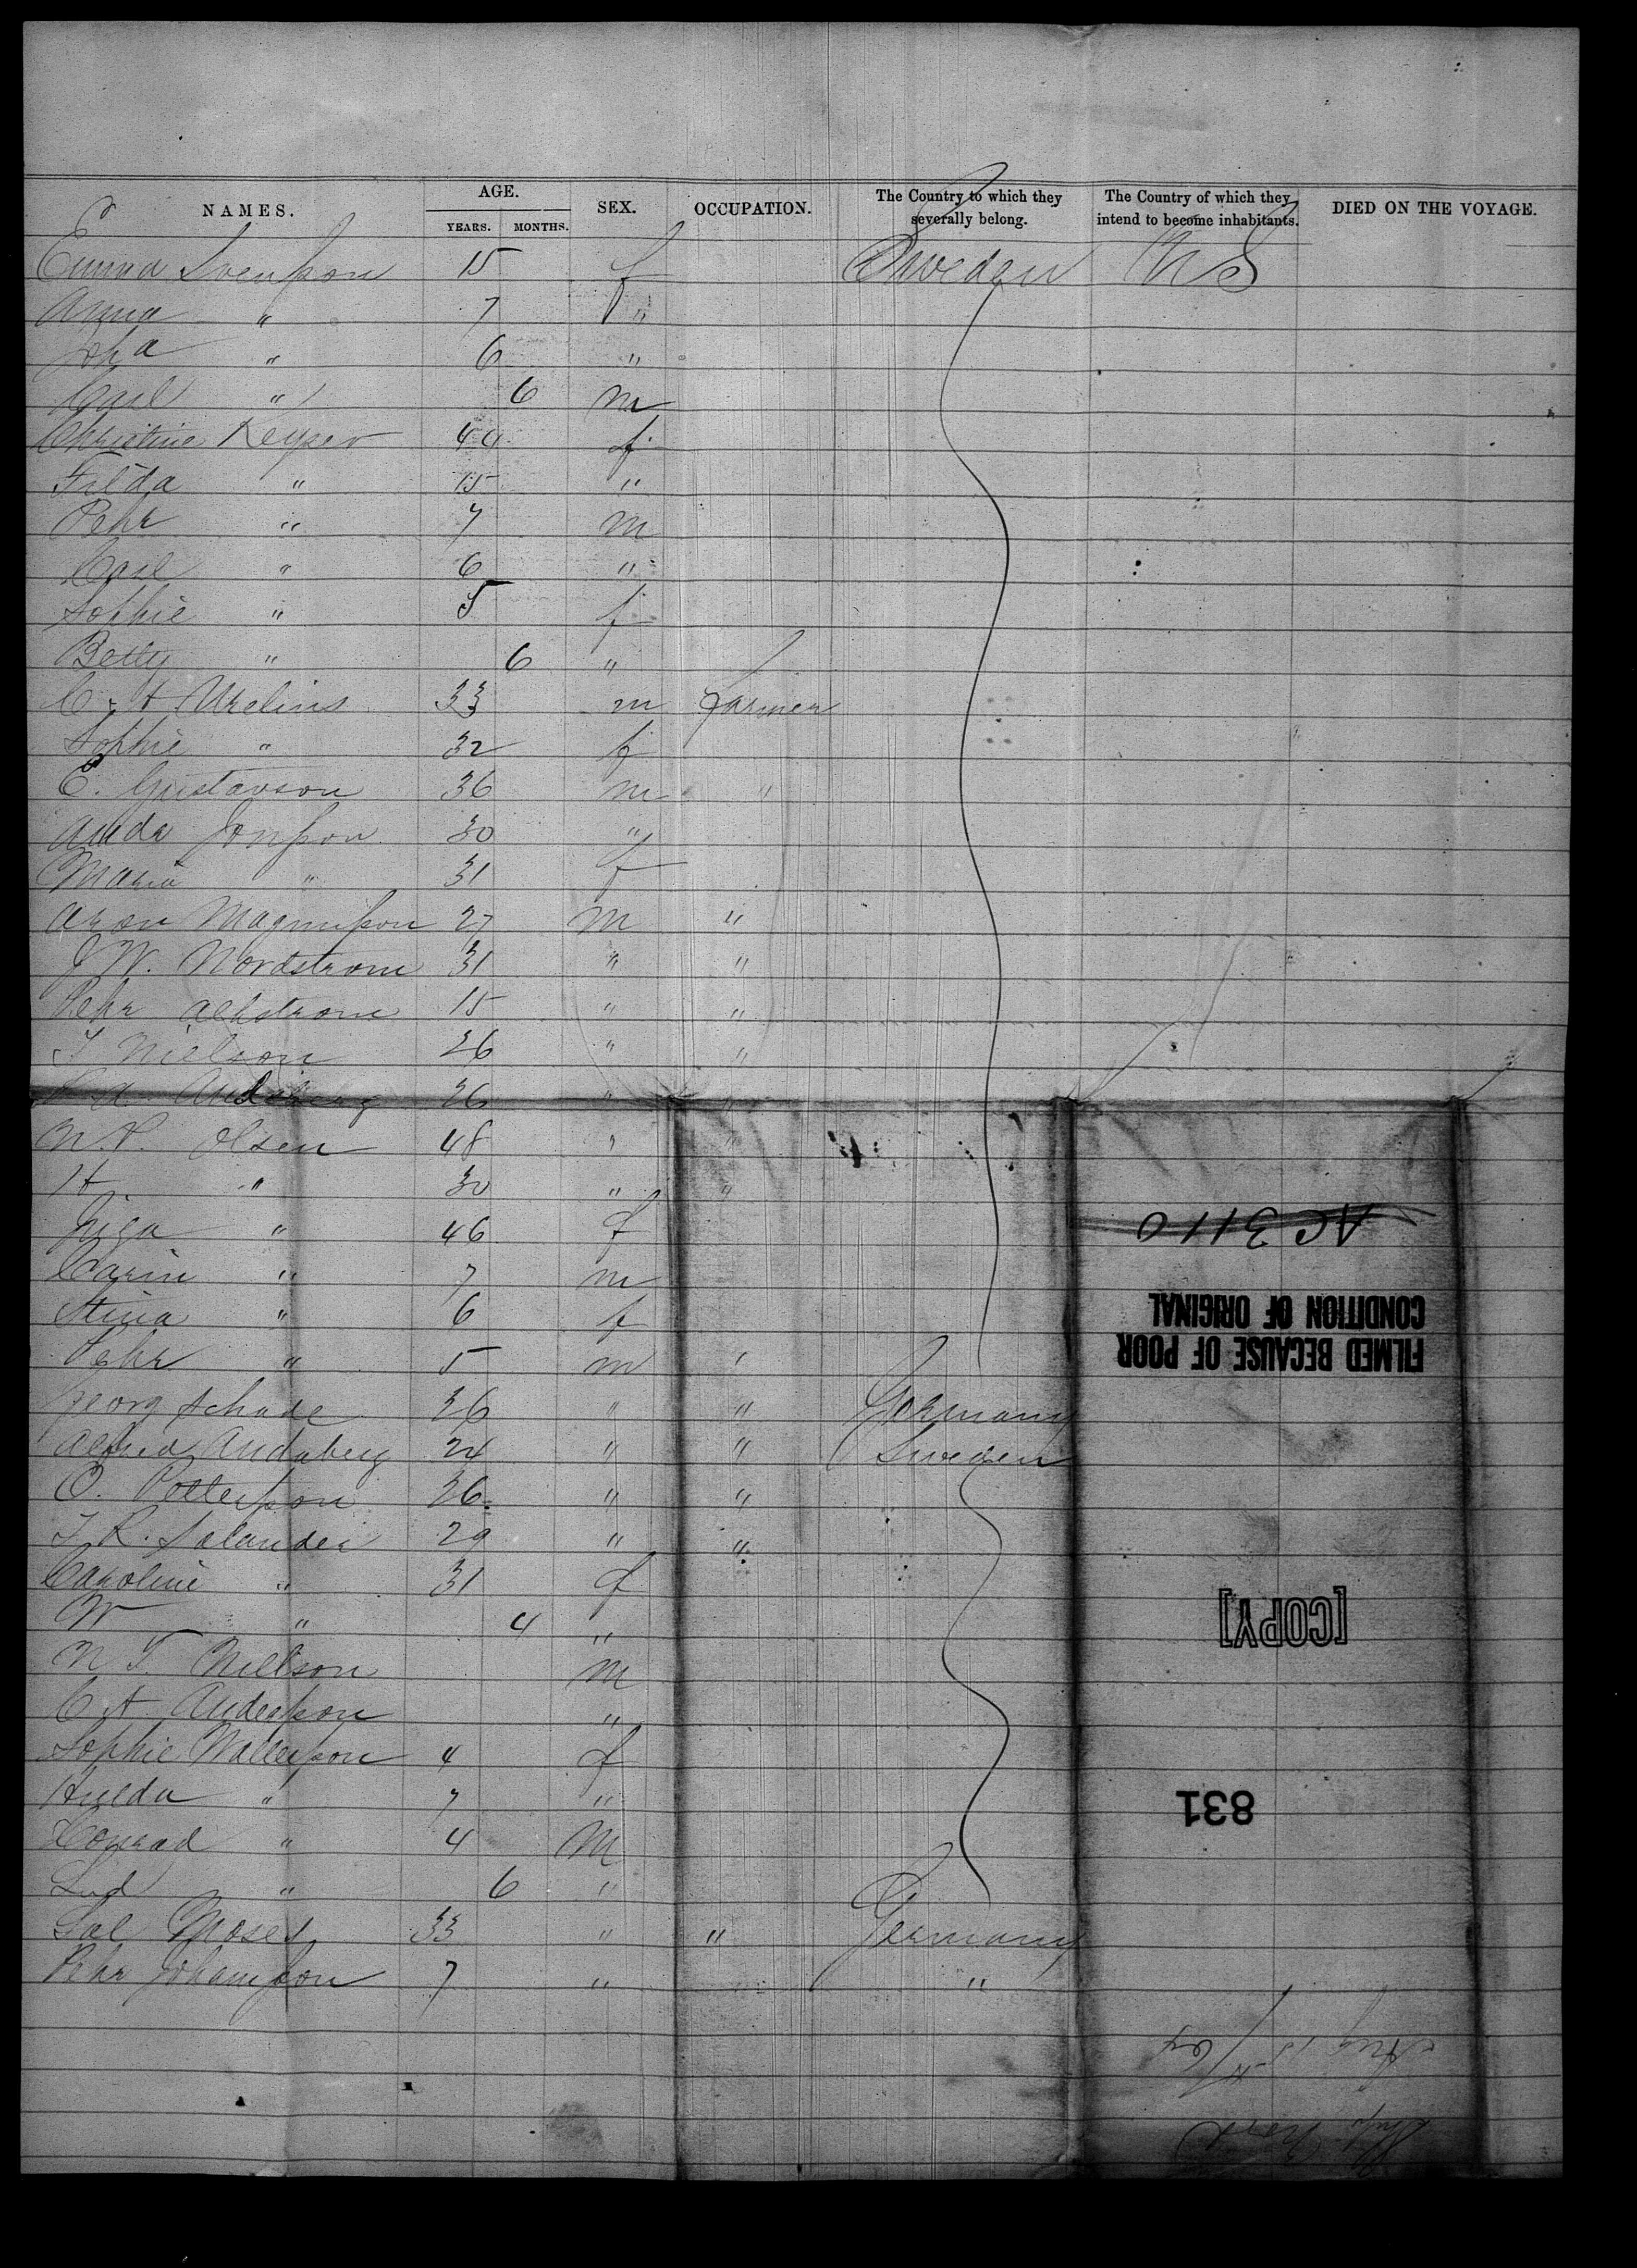 NAMES. AGE. SEX. OCCUPATION. The Country to which they severally belong. The Country of which they intend to become inhabitants. DIED ON THE VOYAGE.
YEARS. MONTHS.
Emma Svensson 15 f Sweden U S
Anna " 7 "
" 6 "
Carl " 6 m
Christine Keyser 44 f
Filda " 15 "
Pehr " 7 m
Carl " 6 "
Sophie " 5 f
Betty " 6 "
C. A Urelins 33 m farmer
Sophie " 32 f
C. Gustavson 36 m "
Jonsson 30 "
Maria " 31 f
Aron Magnusson 27 m "
J W. Nordstrom 31 " "
Pehr Alhstrom 15 " "
T Nielson 26 " "
26 " "
N. P. Olsen 48 " "
H " 30 " "
Inga " 46 f
Carin " 7 m
Stina " 6 f
Pehr " 5 m "
Georg Schade 26 " " Germany
Alfred Andaberg 24 " " Sweden
O. Pettersson 26 " "
T. R. Salander 29 " "
Caroline " 31 f
W " 4 "
N T. Nillson m
C A Andersson "
Sophie Wallersson 4 f
Hulda " 7 "
Conrad " 4 m
Lud " 6 "
Sal Moses 33 " " Germany
Pehr Johansson 7 " "
AC 3110
FILMED BECAUSE OF POOR
CONDITION OF ORIGINAL
[COPY]
831
Ship
Aug 15th /64